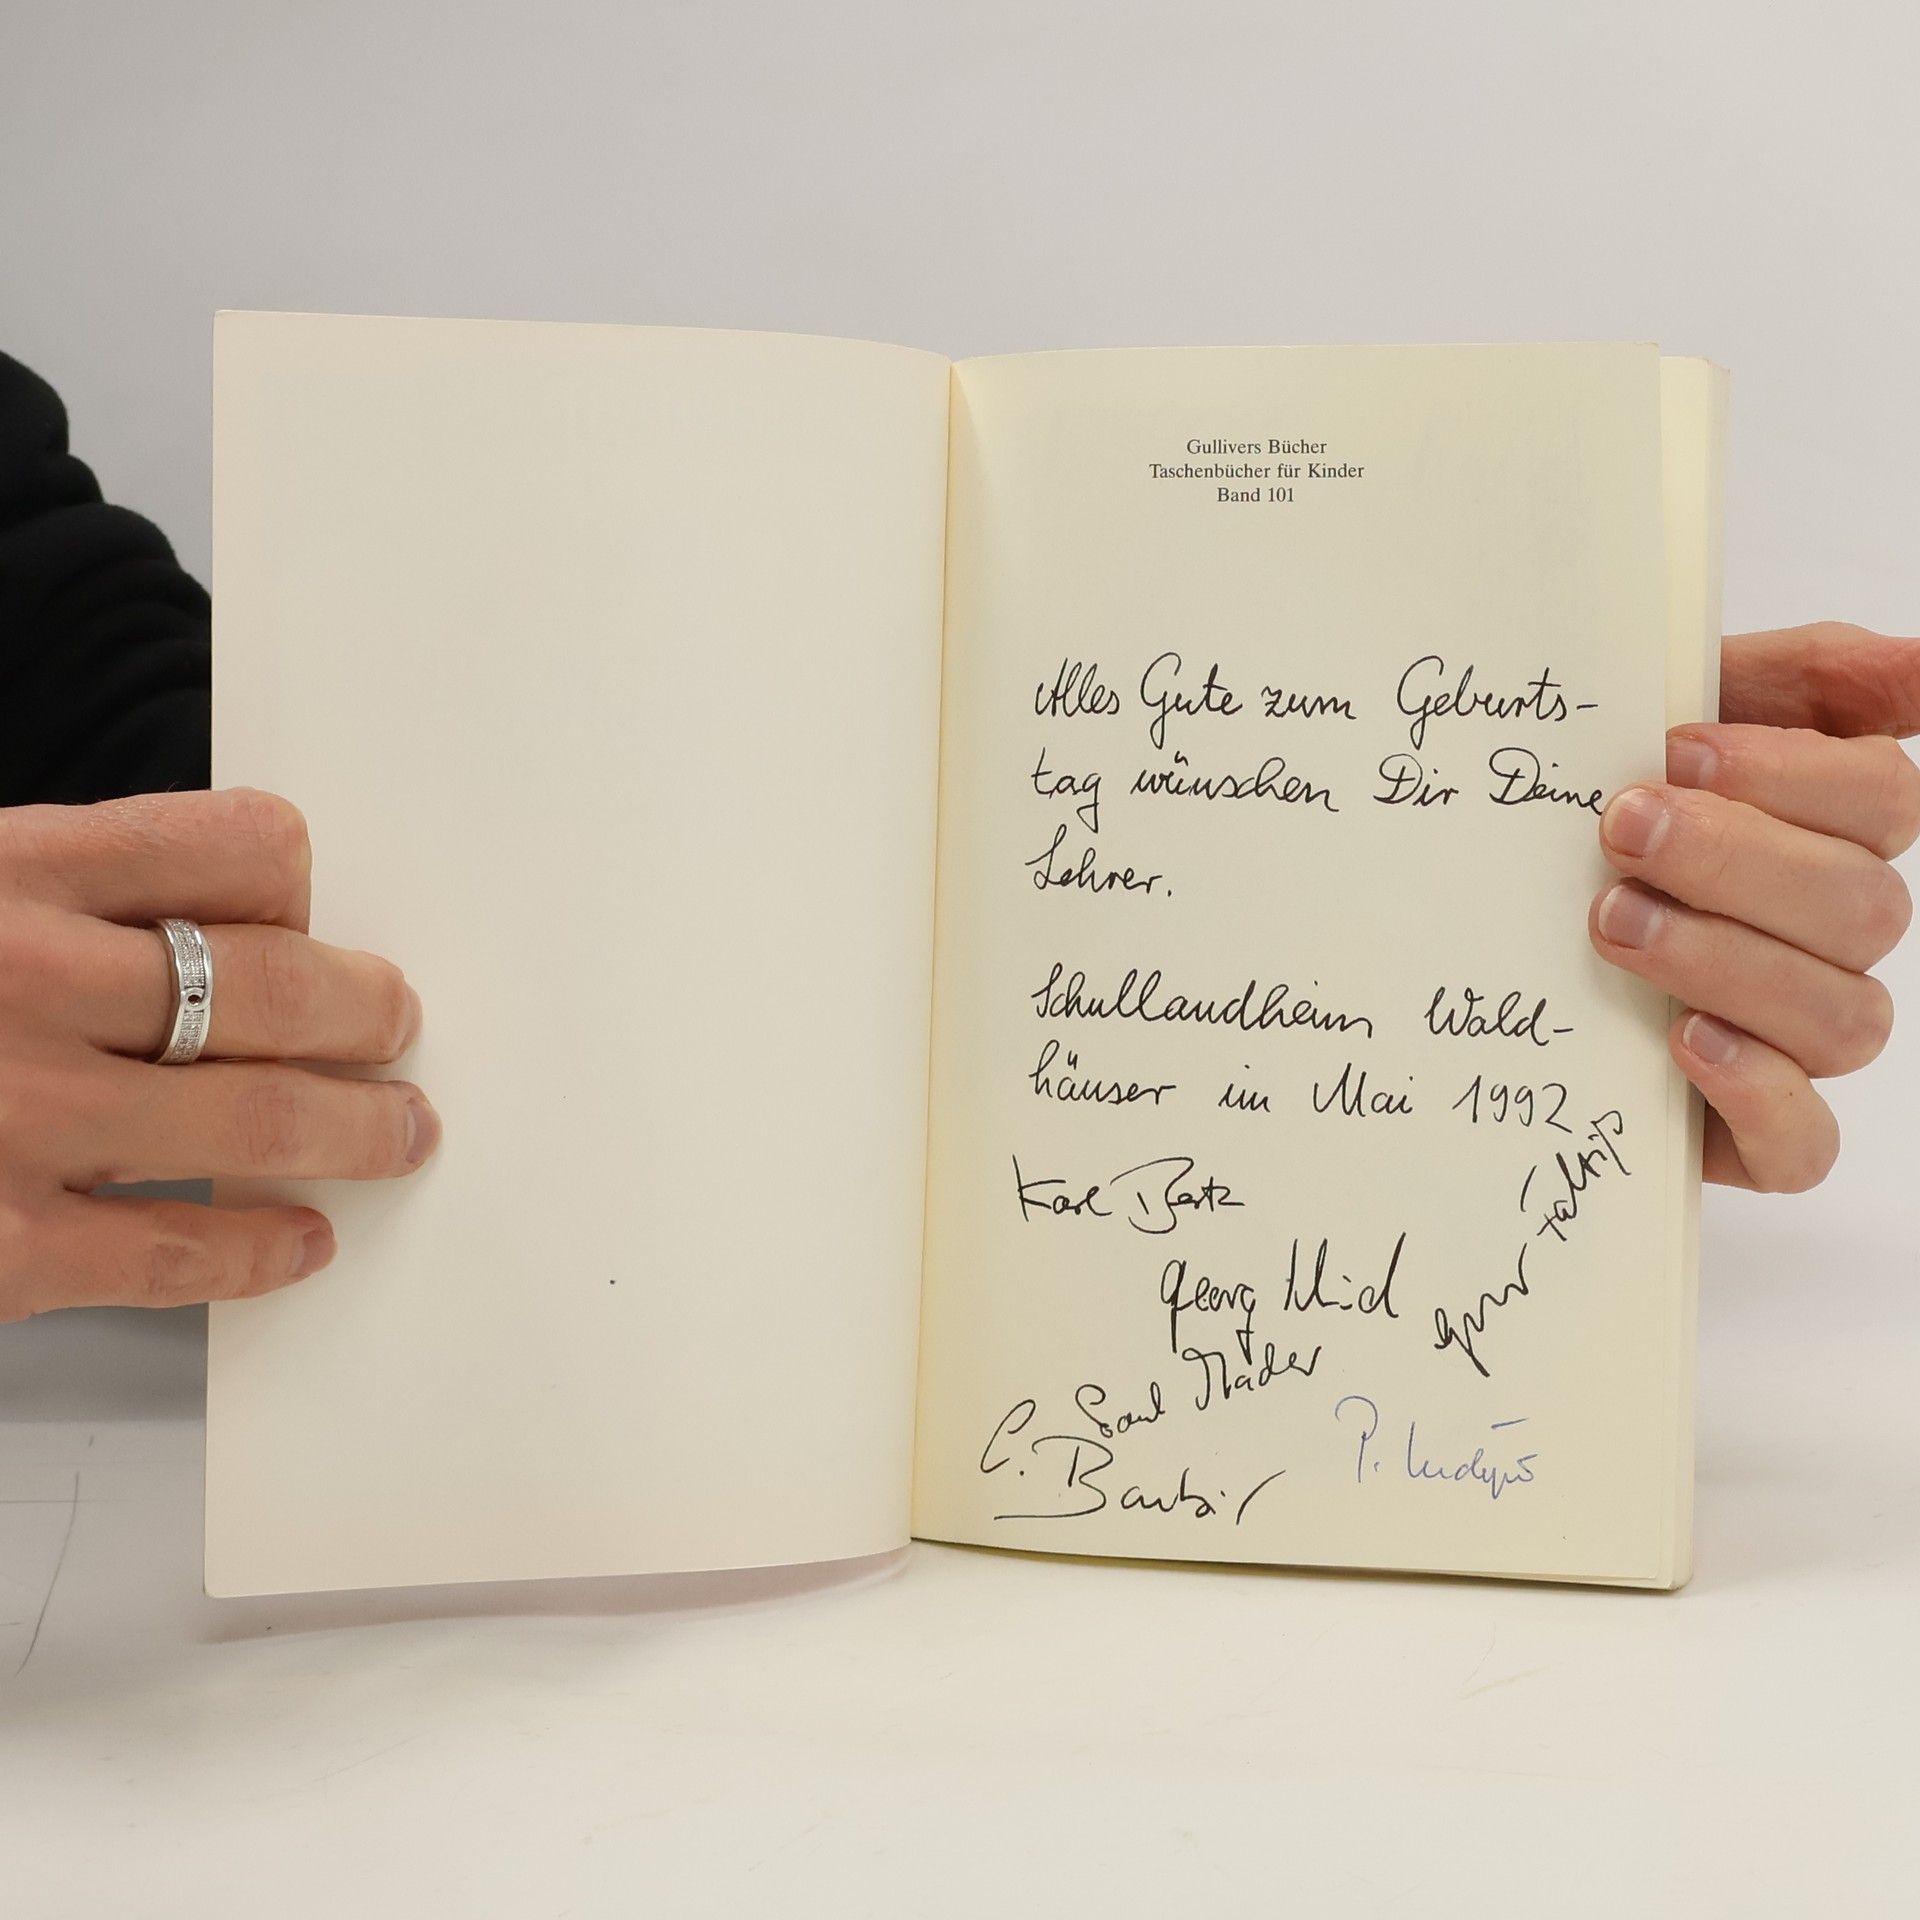 Gullivers Bücher
Taschenbücher für Kinder
Band 101
Alles Gute zum Geburts-
tag wünschen Dir Deine
Lehrer.
Schullandheim Wald-
häuser im Mai 1992
Karl Bartz
Georg
Paul Mader
C.
P.